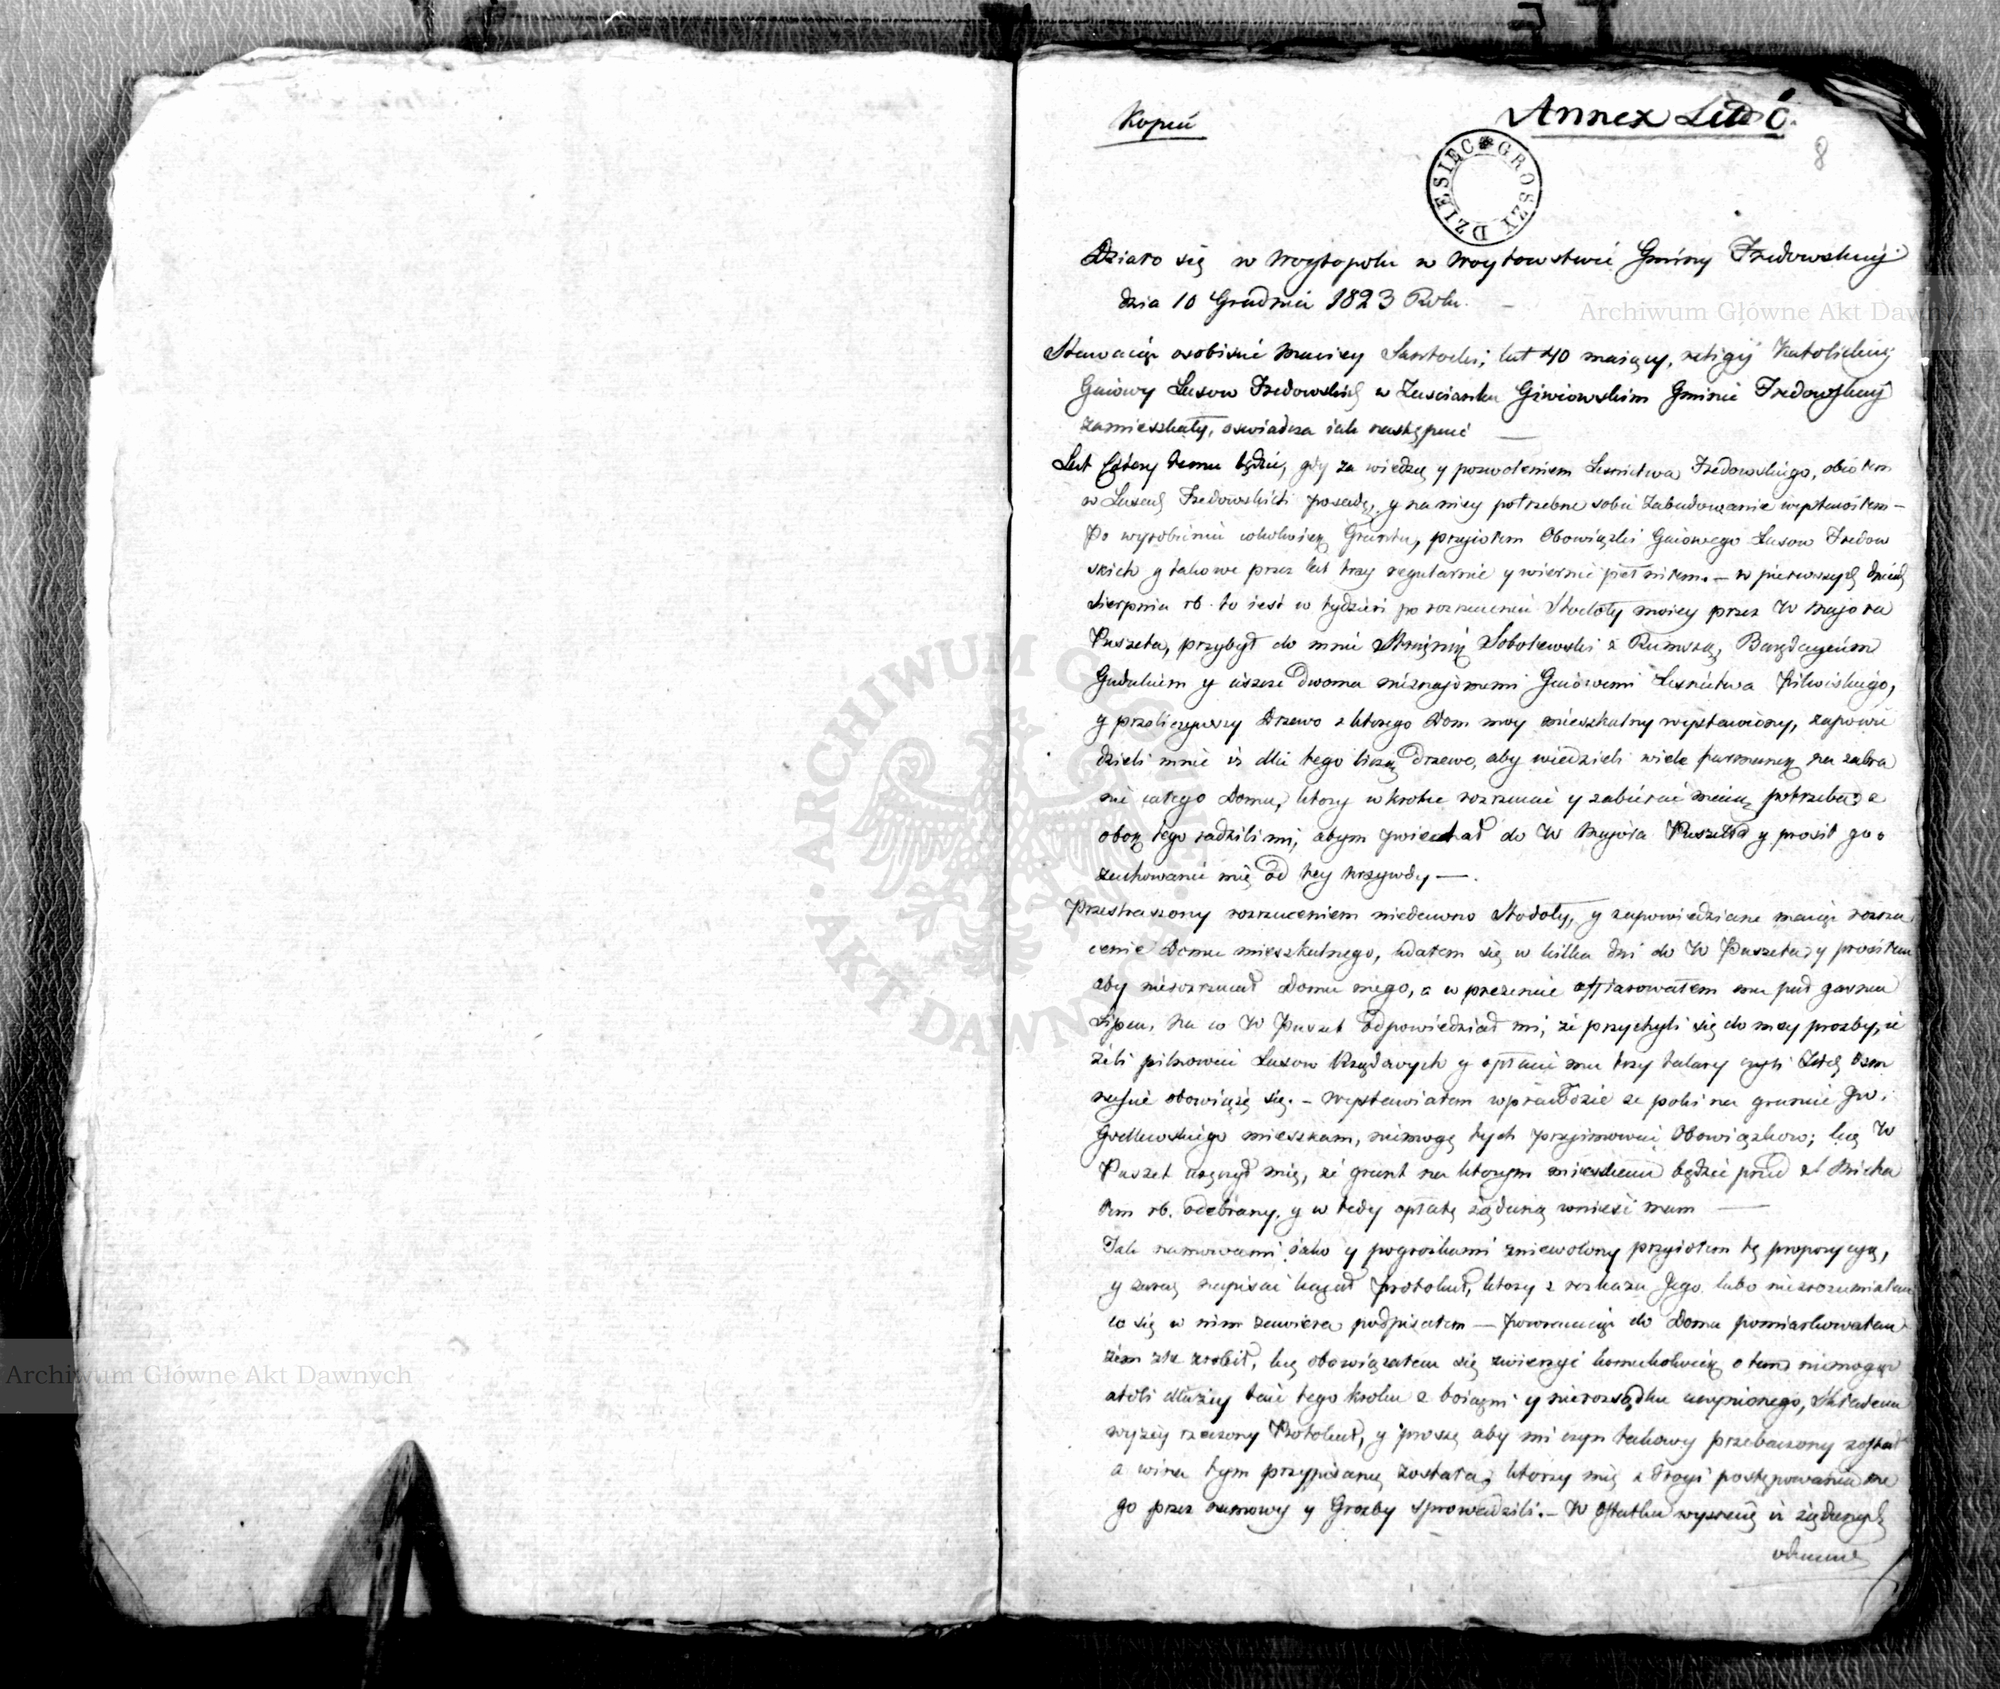 Kopiia
Annex Litt. C.
8
DZIESIĘC GROSZY
Działo się w Woytopolu w Woytowstwie Gminy Fredowskiey
dnia 10 Grudnia 1823 Roku.
Stawaiąc osobiście Maciey Santocki, lat 40 maiący, religij Katolickiey
Gaiowy Lasow Fredowskich w Zaścianku Giwiowskim Gminie Fredowskiey
zamieszkały, oswiadcza iak następuie
Lat Cztery temu będzie, gdy za wiedzą y pozwoleniem Lesnictwa Fredowskiego, obiołem
w Lasach Fredowskich posadę, y na niey potrzebne sobie Zabudowanie wystawiłem –
Po wyrobieniu cokolwiek Gruntu, przyiołem Obowiązki Gaiowego Lasow Fredow
skich y takowe przez lat trzy regularnie y wiernie pełniłem. – w pierwszych dniach
Sierpnia rb. to iest w tydzień po rozrzuceniu Stodoły moiey przez W Majora
Puszeta, przybył do mnie Strażnik Sobolewski z Rumszą,
Gudukiem y ieszcze dwoma nieznajomemi Gaiowemi Lesnictwa Pilwiskiego,
y przeliczywszy Drzewo z ktorego Dom moy mieszkalny wystawiony, zapowie
dzieli mnie iż dla tego liczą drzewo, aby wiedzieli wiele furmanek na zabra
nie całego Domu, ktory wkrotce rozrzucić y zabierać maią potrzeba; a
obok tego radzili mi, abym poiechał do W Majora Puszeta y prosił go o
zachowanie mię od tey krzywdy —.
Przestraszony rozrzuceniem niedawno Stodoły, y zapowiedziane maiąc rozrzu
cenie Domu mieszkalnego, udałem się w kilka dni do W Puszeta y prosiłem
aby nierozrzucał Domu mego, a w prezencie offiarowałem mu puł garnca
Lipcu, na co W Puszet odpowiedział mi, że przychyli się do mey prozby, ie
żeli pilnować Lasow Rządowych y opłacić mu trzy talary czyli Złch Osm
naście obowiążę się. – Wystawiałem wprawdzie ze poki na gruncie JW.
Godlewskiego mieszkam, niemogę tych przyimować Obowiązkow; lecz W
Puszet ręczył mię, że grunt na ktorym mieszkam będzie przed St Micha
łem rb. odebrany, y w tedy opłatę żądaną wnieść mam —
Tak namowami iako y pogrożkami zniewolony przyiołem tę propozycyą,
y zaraz napisać kazał Protokuł, ktory z rozkazu Jego lubo niezrozumiałem
co się w nim zawiera podpisałem — Powracaiąc do Domu pomiarkowałem
żem źle zrobił, lecz obawiałem się zwierzyć komukolwiek o tem niemogąc
atoli dłużey taić tego kroku z boiazni y nierozsądku uczynionego, Składam
wyżey rzeczony Protokuł, y proszę aby mi czyn takowy przebaczony został
a wina tym przypisaną została, ktorzy mię z drogi postępowania me
go przez namowy y Grozby sprowadzili. – W Ostatku wyznaię iż żadnych